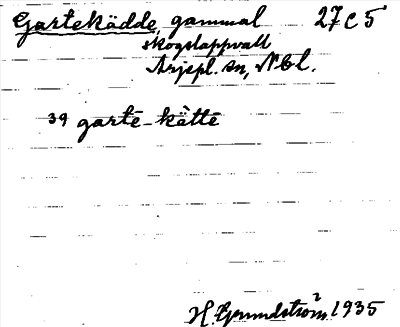 Gartekädde, gammal 27 C 5
skogslappvall
Arjepl. sn, Nbl.
39 gartē-kä̀ttē
H. Grundström 1935